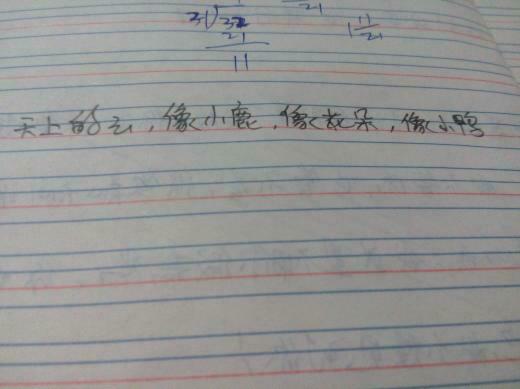 21
3 32 1 11/21
21
11
天上的云，像小鹿，像花朵，像小鸭